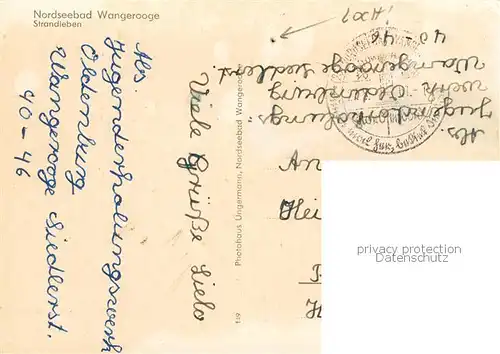 Nordseebad Wangerooge
Strandleben
Abs.
Jugenderholungswerk
Oldenburg
Wangerooge Siedlerst.
40-46
Viele Grüße Lielo
119 Photohaus Ungermann, Nordseebad Wangerooge
Abs.
Jugenderholungs
werk Oldenburg
Wangerooge Siedlerst.
40-46
An
Hei
privacy protection
address data